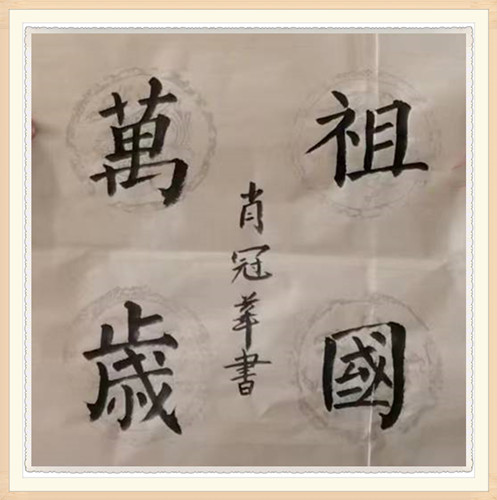 祖國
萬歲
肖冠華書